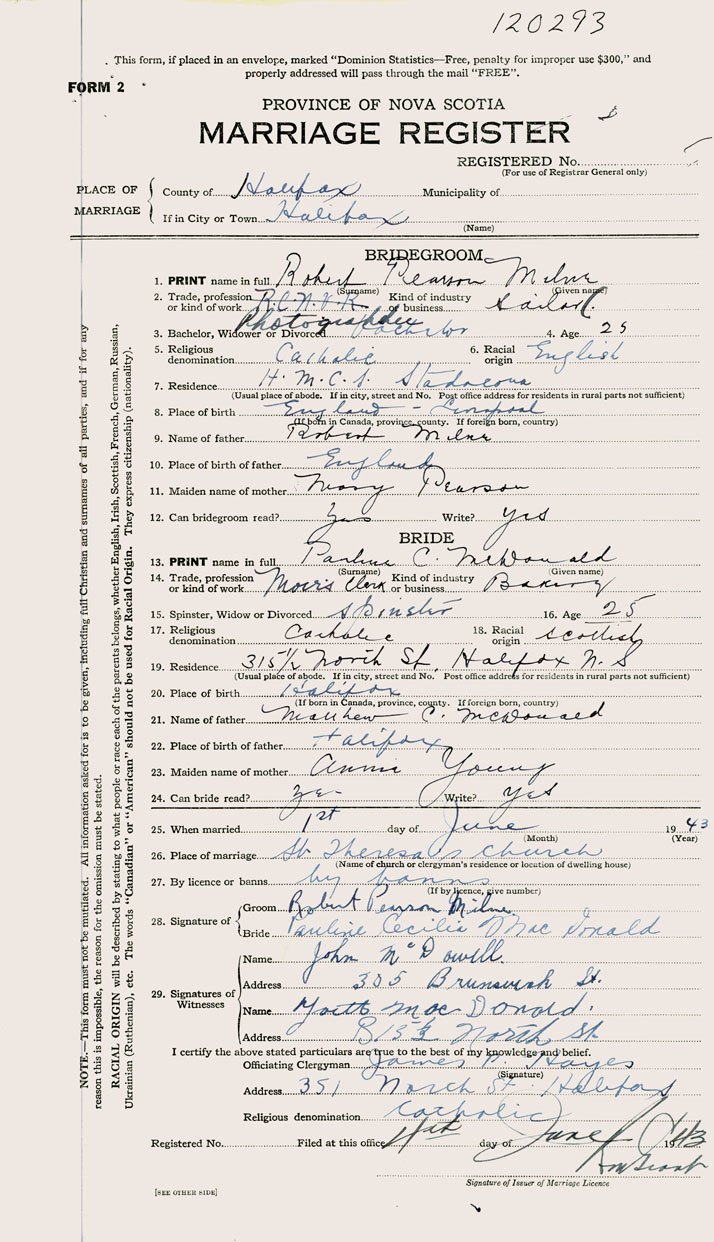 120293
This form, if placed in an envelope, marked “Dominion Statistics—Free, penalty for improper use $300,” and
properly addressed will pass through the mail “FREE”.
FORM 2
PROVINCE OF NOVA SCOTIA
MARRIAGE REGISTER
REGISTERED No.
(For use of Registrar General only)
PLACE OF MARRIAGE
County of Halifax Municipality of
If in City or Town Halifax
(Name)
BRIDEGROOM
1. PRINT name in full Robert Pearson Milne
(Surname) (Given name)
2. Trade, profession or kind of work R.C.N.V.R. Photographer Kind of industry or business Sailor
3. Bachelor, Widower or Divorced Bachelor 4. Age 25
5. Religious denomination Catholic 6. Racial origin English
7. Residence H.M.C.S. Stadacona
(Usual place of abode. If in city, street and No. Post office address for residents in rural parts not sufficient)
8. Place of birth England - Liverpool
(If born in Canada, province, county. If foreign born, country)
9. Name of father Robert Milne
10. Place of birth of father England
11. Maiden name of mother Mary Pearson
12. Can bridegroom read? Yes Write? Yes
BRIDE
13. PRINT name in full Pauline C. McDonald
(Surname) (Given name)
14. Trade, profession or kind of work Moirs Clerk Kind of industry or business Bakery
15. Spinster, Widow or Divorced Spinster 16. Age 25
17. Religious denomination Catholic 18. Racial origin Scottish
19. Residence 315½ North St, Halifax N.S
(Usual place of abode. If in city, street and No. Post office address for residents in rural parts not sufficient)
20. Place of birth Halifax
(If born in Canada, province, county. If foreign born, country)
21. Name of father Matthew C. McDonald
22. Place of birth of father Halifax
23. Maiden name of mother Annie Young
24. Can bride read? Yes Write? Yes
25. When married 1st day of June 1943
(Month) (Year)
26. Place of marriage St. Theresa's Church
(Name of church or clergyman's residence or location of dwelling house)
27. By licence or banns by banns
(If by licence, give number)
28. Signature of
Groom Robert Pearson Milne.
Bride Pauline Cecilia MacDonald
29. Signatures of Witnesses
Name John McDowell.
Address 305 Brunswick St.
Name MacDonald.
Address 315½ North St
I certify the above stated particulars are true to the best of my knowledge and belief.
Officiating Clergyman James P. Hayes
(Signature)
Address 351 North St Halifax
Religious denomination Catholic
Registered No. Filed at this office day of June 1943
Signature of Issuer of Marriage Licence
[SEE OTHER SIDE]
NOTE.—This form must not be mutilated. All information asked for is to be given, including full Christian and surnames of all parties, and if for any
reason this is impossible, the reason for the omission must be stated.
RACIAL ORIGIN will be described by stating to what people or race each of the parents belongs, whether English, Irish, Scottish, French, German, Russian,
Ukrainian (Ruthenian), etc. The words “Canadian” or “American” should not be used for Racial Origin. They express citizenship (nationality).